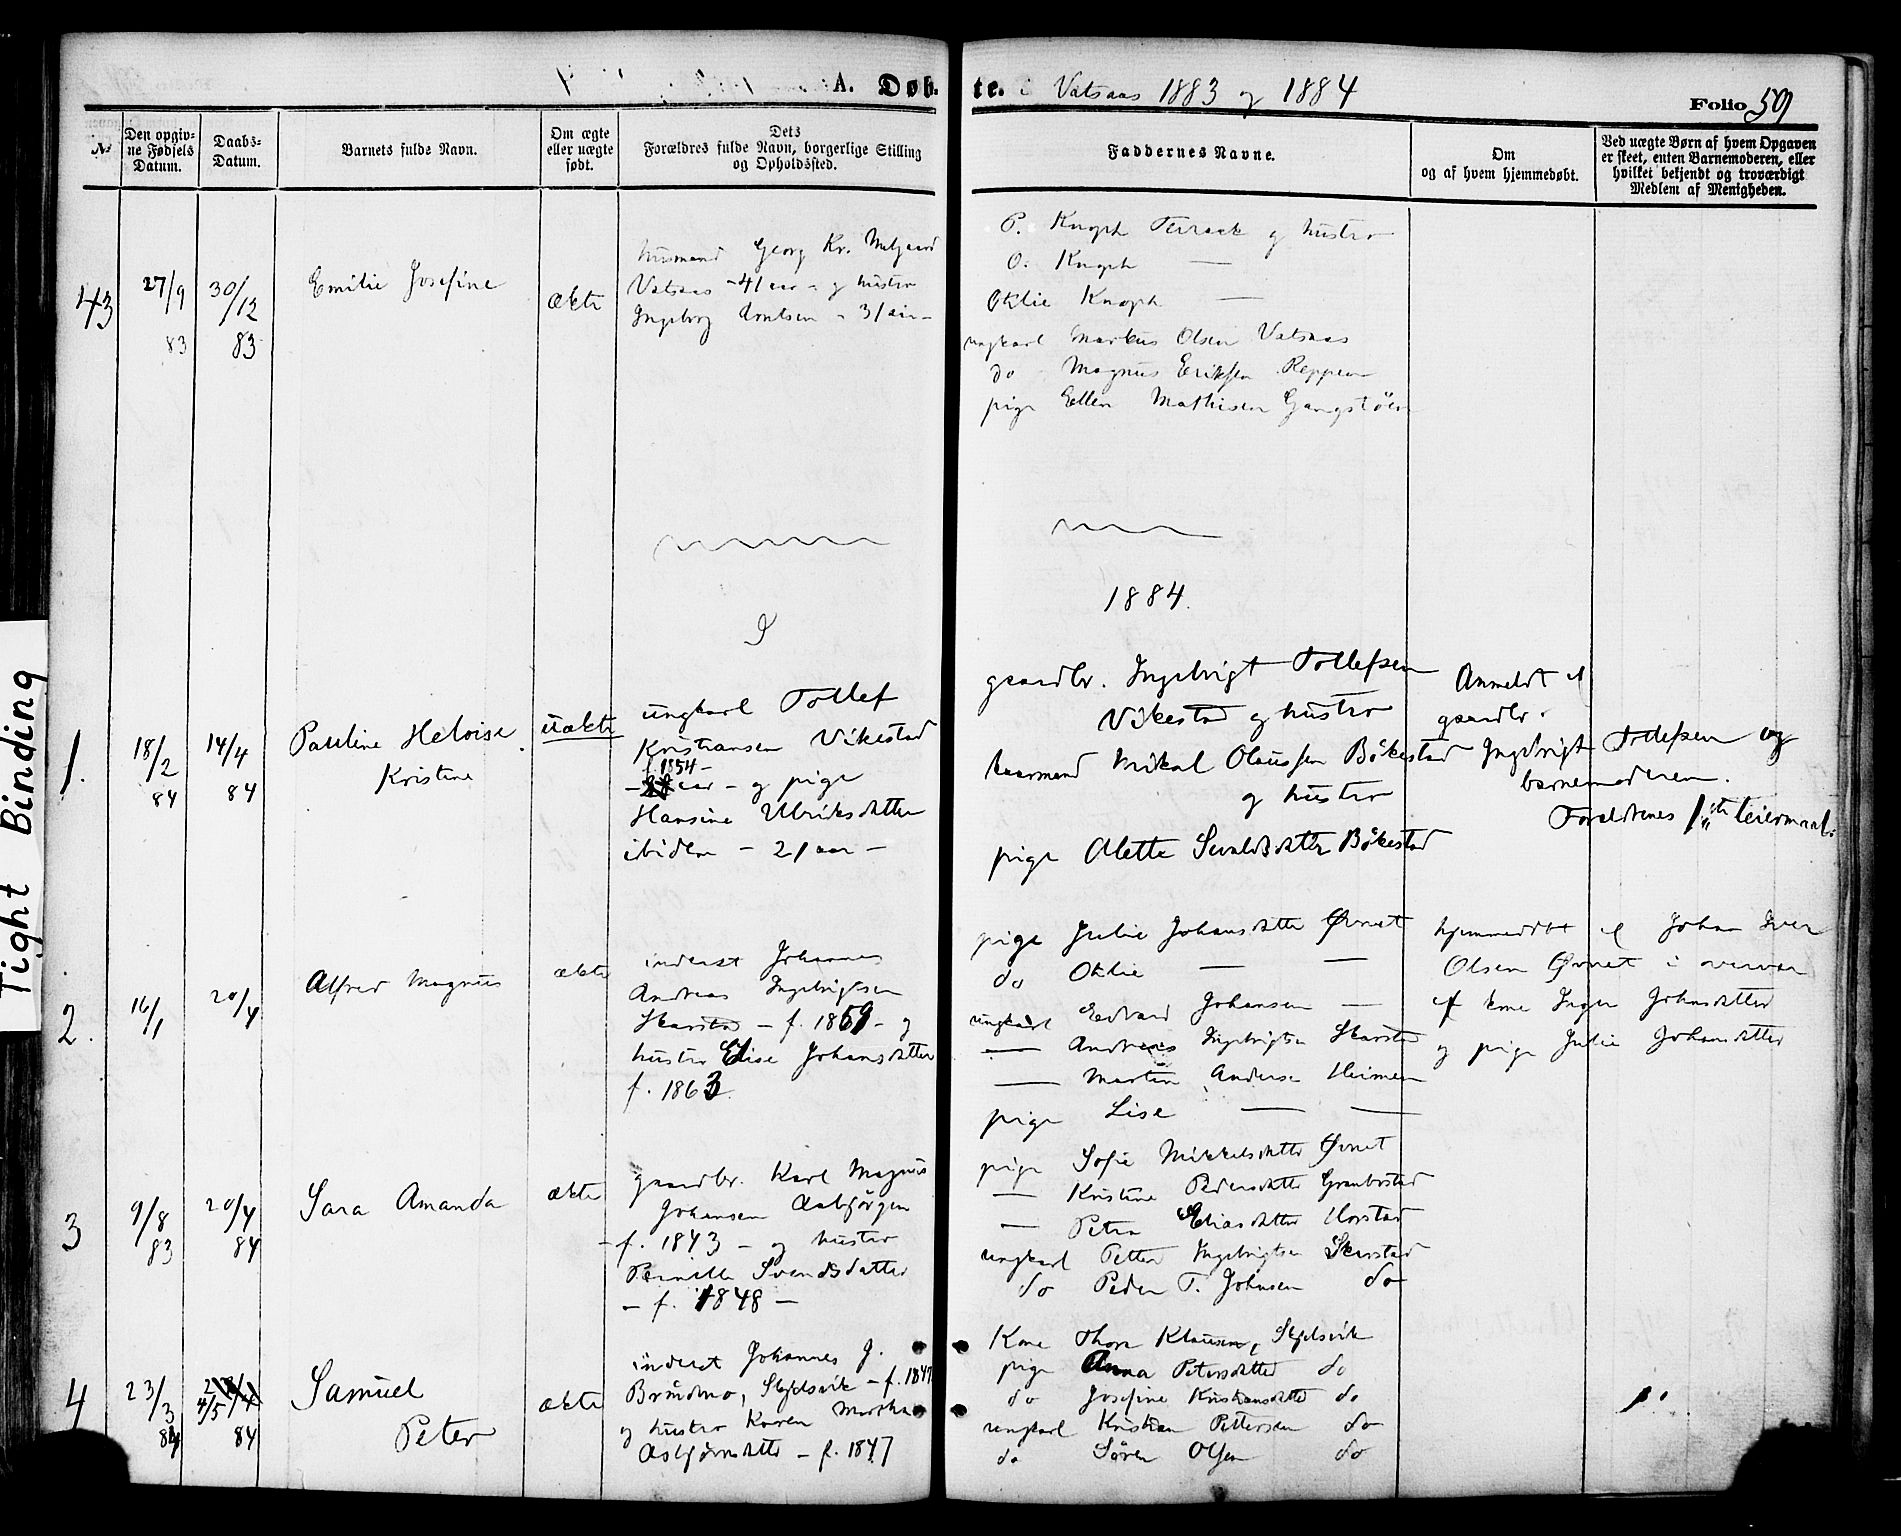 A. Døbte. i Vatsaas 1883 og 1884
Folio 59
№
Den opgivne Fødsels Datum.
Daabs-Datum.
Barnets fulde Navn.
Om ægte eller uægte født.
Dets Forældres fulde Navn, borgerlige Stilling og Opholdssted.
Faddernes Navne.
Om og af hvem hjemmedøbt.
Ved uægte Børn af hvem Opgaven er skeet, enten Barnemoderen, eller hvilket bekjendt og troværdigt Medlem af Menigheden.
43
27/9 83
30/12 83
Emilie Josefine
ækte
husmand Georg Kr.
Vatsaas - 41 aar - og hustru
Ingeborg Arntsen - 31 aar -
P. Knoph Terraek og hustru
O. Knoph —
Otilie Knoph —
ungkarl Markus Olsen Vatsaas
do Magnus Eriksen Reppen
pige Ellen Mathisen Gangstøen
1884.
1.
18/2 84
14/4 84
Pauline Heloise
Kristine
uækte
ungkarl Tollef
Kristiansen Vikestad
f. 1854 -
aar - og pige
Hansine Ulriksdatter
ibidem - 21 aar -
gaardbr. Ingebrigt Tollefsen
Vikestad og hustro
kaarmand Mikal Olaussen Bökestad
og hustro
pige Alette Sivaldsdatter Bökestad
Anmeldt af
gaardbr.
Ingebrigt Tollefsen og
barnemoderen.
Forældrenes 1ste leiermaal.
2.
16/1
20/4
Alfred Magnus
ækte
inderst Johannes
Andreas Ingebrigtsen
Skarstad - f. 1859 - og
hustro Elise Johansdatter
f. 1863
pige Julie Johansdatter Øvnet
do Otilie — —
ungkarl Edvard Johansen —
— Andreas Ingebrigtsen Skarstad
— Martin Anderse Heimen
pige Lise — —
hjemmedöbt af Johan Iver
Olsen Øvnet i overvær
af kone Inger Johnsdatter
og pige Julie Johansdatter
3
9/8 83
20/4 84
Sara Amanda
ækte
gaardbr. Karl Magnus
Johansen Aasbjörgen
- f. 1843 - og hustro
Pernille Svendsdatter
- f. 1848 -
pige Sofie Mikkelsdatter Øvnet
— Kristine Pedersdatter Grandostad
— Petra Eliasdatter Horstad
ungkarl Petter Ingebrigtsen Skarstad
do Peder T. Johnsen do
4
23/3 84
4/5 84
Samuel
Peter
ækte
inderst Johannes J.
Brudmo, Skjelsvik - f. 1847
og hustro Karen Martha
Asbjörnsdatter - f. 1847
Kone Thora Klausen, Skjelsvik
pige Anna Petersdatter do
do Josefine Kristiansdatter do
ungkarl Kristian Pettersen do
do Sören Olsen do
Tight Binding